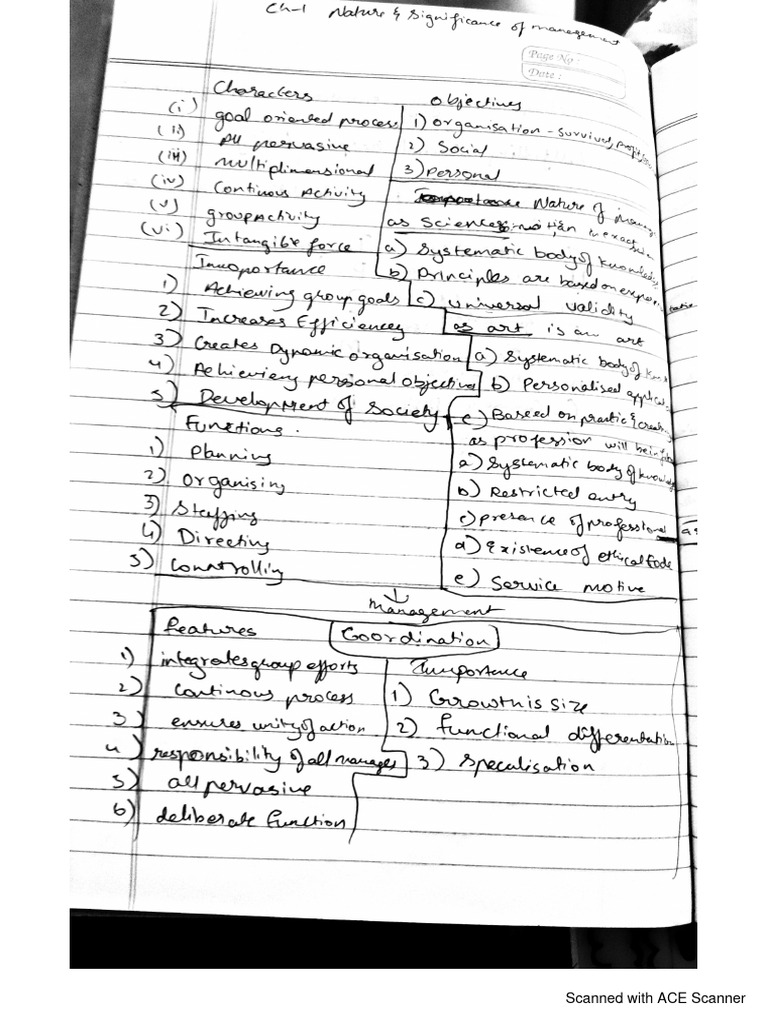 Ch-1 Nature & Significance of management
Page No :
Date :
Characters
(i) goal oriented process
(ii) All pervasive
(iii) Multidimensional
(iv) Continous Activity
(v) group Activity
(vi) Intangible force
Objectives
1) Organisation - Survival, profit,
2) Social
3) Personal
Importance
1) Achieving group goals
2) Increases Efficiency
3) Creates Dynamic organisation
4) Achieving personal objective
5) Development of Society
Nature of
as Science
a) Systematic body of knowledge
b) Principles are based on
c) universal validity
as art is an art
a) Systematic body of
b) Personalised
c) Baseed on practic &
as profession will be
a) Systematic body of knowledge
b) Restricted entry
c) presence of professional
d) Existence of ethical Code
e) Service motive
Functions.
1) Planning
2) Organising
3) Staffing
4) Directing
5) Conntrolling
management
Coordination
features
1) integrates group efforts
2) Continous process
3) ensures unity of action
4) responsibility of all manages
5) all pervasive
6) deliberate function
Importance
1) Growth is size
2) functional differentation
3) specalisation
Scanned with ACE Scanner